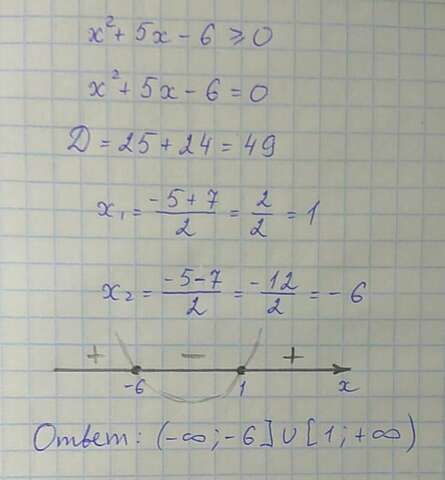 x² + 5x - 6 ≥ 0
x² + 5x - 6 = 0
D = 25 + 24 = 49
x₁ = (-5+7)/2 = 2/2 = 1
x₂ = (-5-7)/2 = -12/2 = -6
+ - +
-6 1 x
Ответ: (-∞; -6] ∪ [1; +∞)